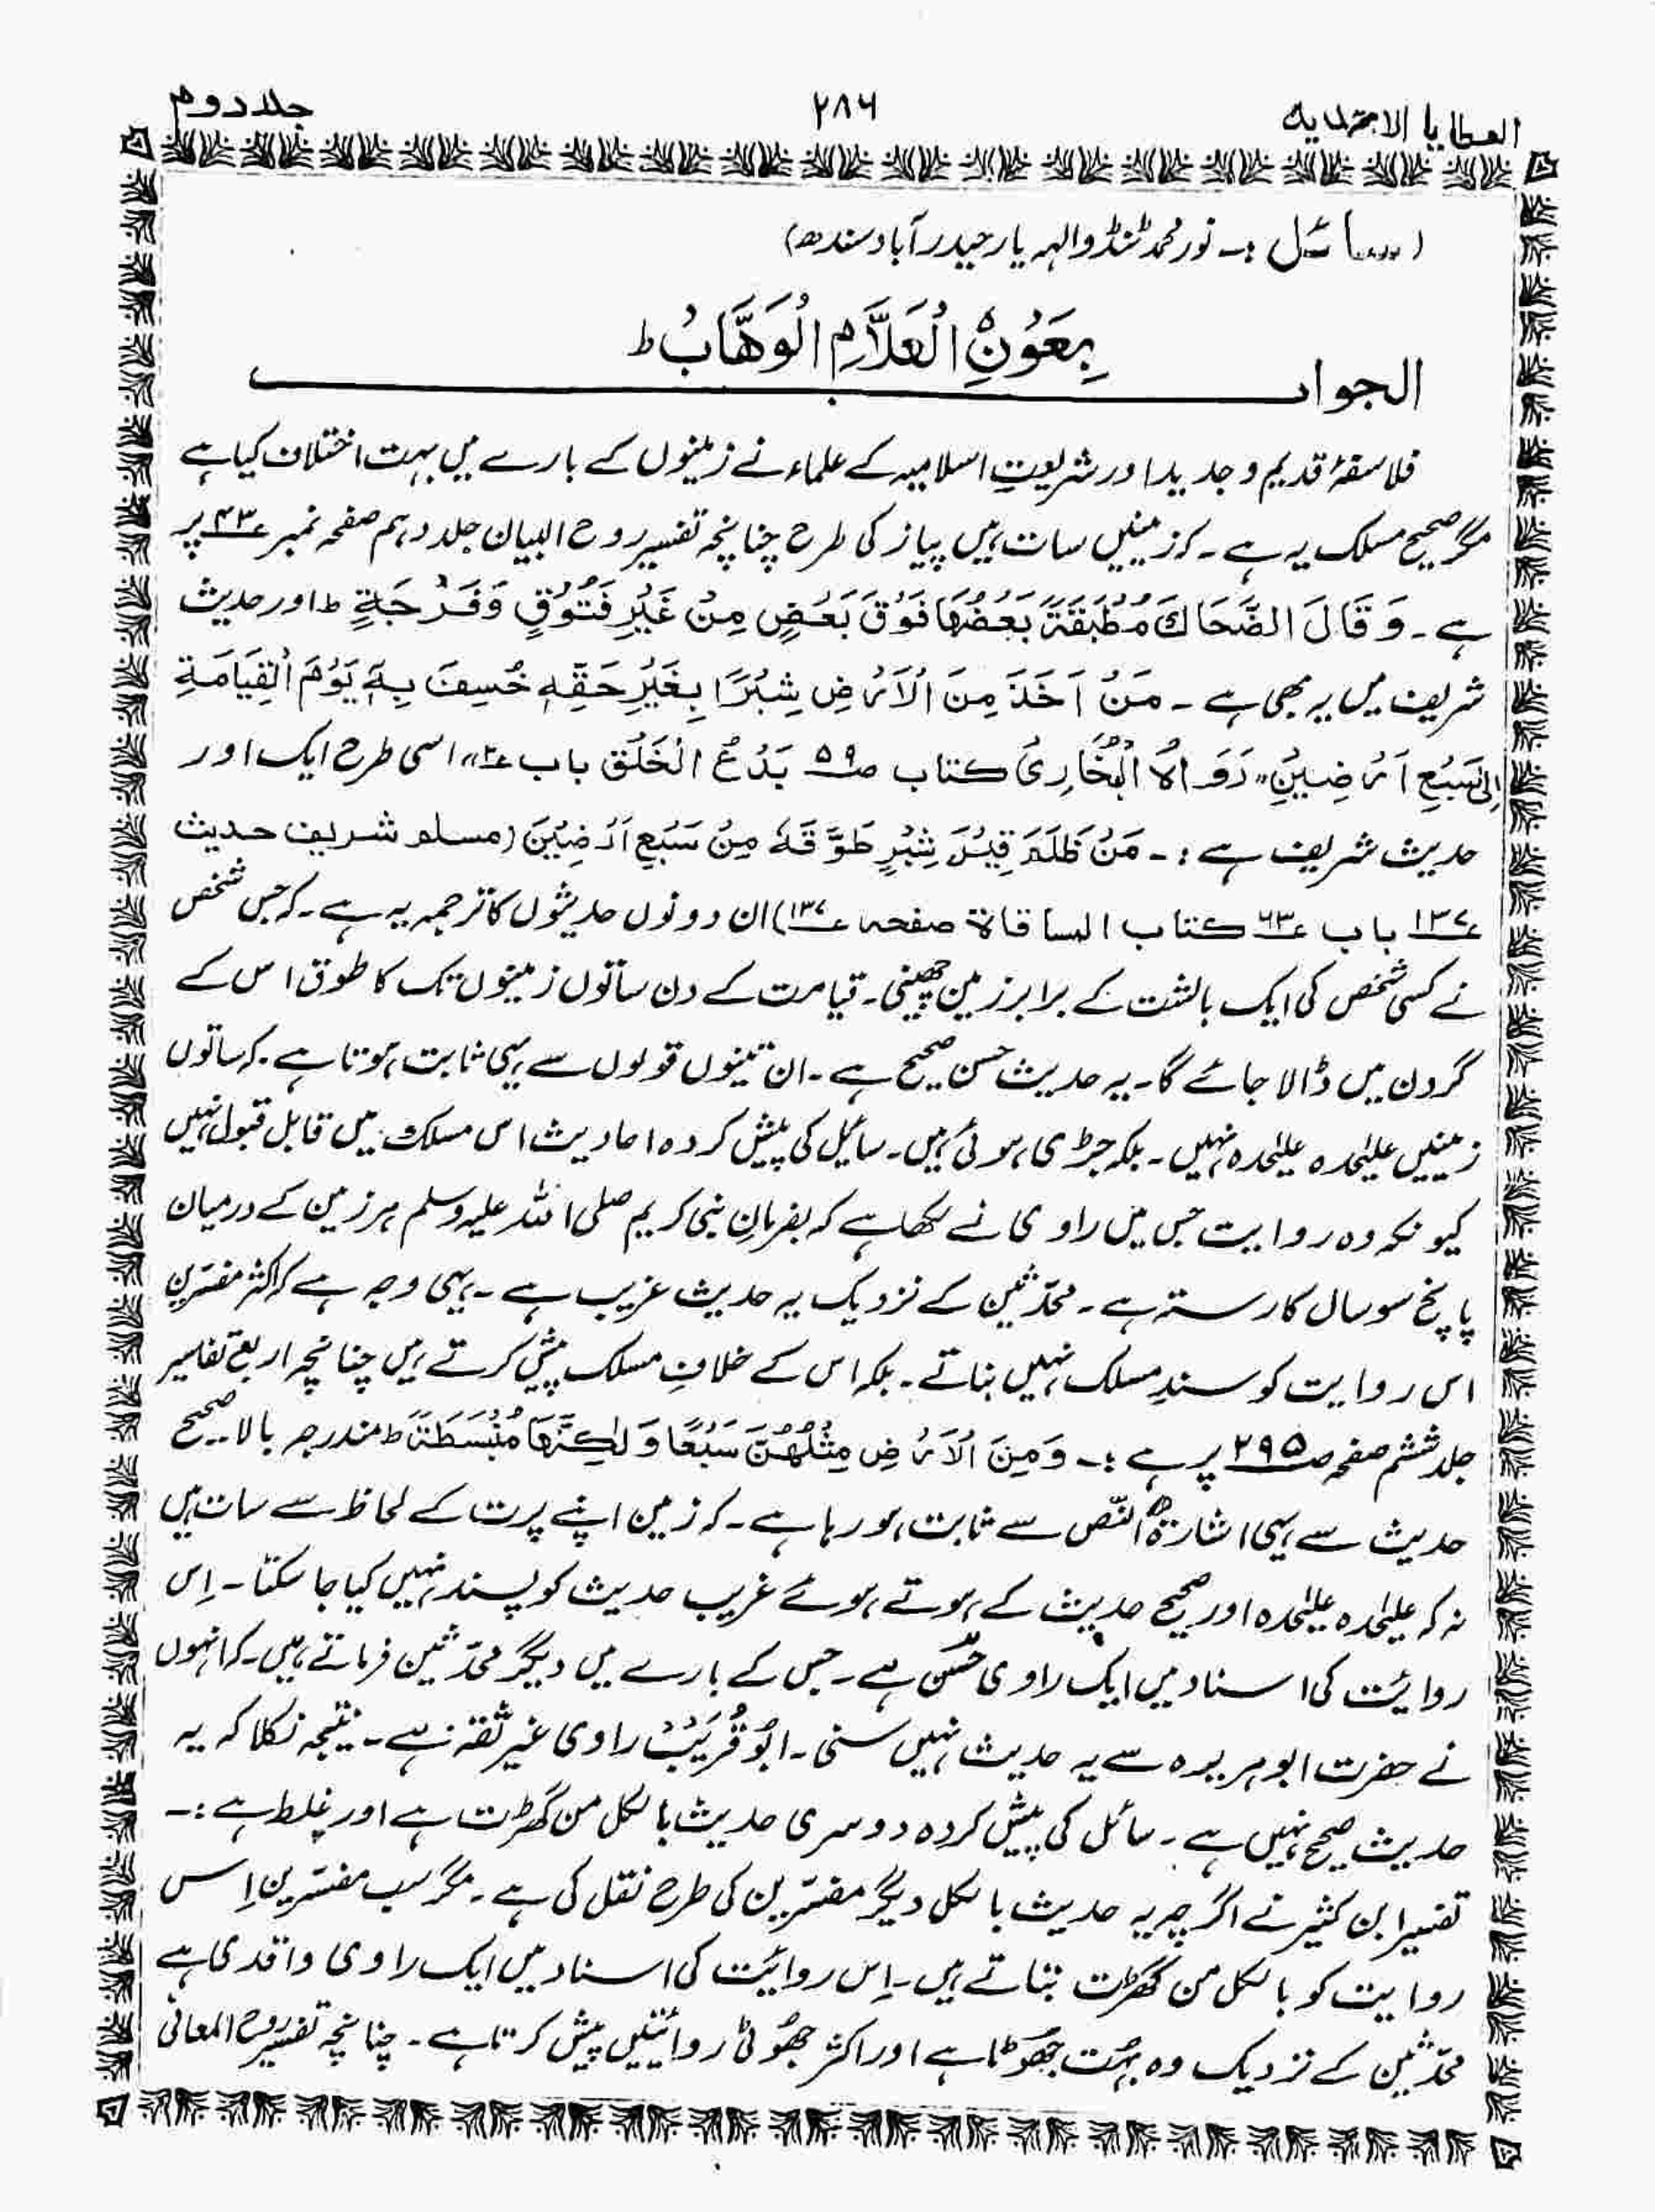 العطایا الاحمدیہ
۲۸۶
جلد دوم
(سائل :۔ نور محمد ٹنڈو الہ یار حیدر آباد سندھ)
بِعَوْنِ الْعَلَّامِ الْوَهَّابُ ط
الجواب
فلاسفۂ قدیم و جدید اور شریعتِ اسلامیہ کے علماء نے زمینوں کے بارے میں بہت اختلاف کیا ہے
مگر صحیح مسلک یہ ہے ۔ کہ زمینیں سات ہیں پیاز کی طرح چنانچہ تفسیر روح البیان جلد دہم صفحہ نمبر ۴۳ پر
ہے ۔ وَ قَالَ الضَّحَاكَ مُطْبَقَةً بَعْضُهَا فَوْقَ بَعْضٍ مِنْ غَيْرِ فَتُوْقٍ وَفَرْجَةٍ ط اور حدیث
شریف میں یہ بھی ہے ۔ مَنْ اَخَذَ مِنَ الْاَرْضِ شِبْرًا بِغَيْرِ حَقِّهٖ خُسِفَ بِهٖ يَوْمَ الْقِيَامَةِ
اِلٰى سَبْعِ اَرْضِيْنِ ״ رَوَاهُ الْبُخَارِیُ كتاب ص۵۹ بَدْءُ الْخَلْق باب ع۲״ اسی طرح ایک اور
حدیث شریف ہے :۔ مَنْ ظَلَمَ قِيْسَ شِبْرٍ طَوَّقَهٗ مِنْ سَبْعِ اَرْضِيْنَ (مسلم شریف حدیث
ع۱۳۷ باب ع۶۳ کتاب المساقاة صفحہ ع۱۳۷) ان دونوں حدیثوں کا ترجمہ یہ ہے ۔ کہ جس شخص
نے کسی شخص کی ایک بالشت کے برابر زمین چھینی ۔ قیامت کے دن ساتوں زمینوں تک کا طوق اس کے
گردن میں ڈالا جائے گا ۔ یہ حدیث حسن صحیح ہے ۔ ان تینوں قولوں سے یہی ثابت ہوتا ہے ۔ کہ ساتوں
زمینیں علیٰحدہ علیٰحدہ نہیں ۔ بلکہ جڑی ہوئی ہیں ۔ سائل کی پیش کردہ احادیث اس مسلک میں قابل قبول نہیں
کیونکہ وہ روایت جس میں راوی نے لکھا ہے کہ بفرمانِ نبی کریم صلی اللہ علیہ وسلم ہر زمین کے درمیان
پانچ سو سال کا رستہ ہے ۔ محدّثین کے نزدیک یہ حدیث غریب ہے ۔ یہی وجہ ہے کہ اکثر مفسّرین
اس روایت کو سندِ مسلک نہیں بناتے ۔ بلکہ اس کے خلاف مسلک پیش کرتے ہیں چنانچہ اربع تفاسیر
جلد ششم صفحہ ص۲۹۵ پر ہے :۔ وَمِنَ الْاَرْضِ مِثْلُهُنَّ سَبْعًا وَلٰكِنَّهَا مُنْبَسَطَةً ط مندرجہ بالا صحیح
حدیث سے یہی اشارۃ النّص سے ثابت ہو رہا ہے ۔ کہ زمین اپنے پرت کے لحاظ سے سات ہیں
نہ کہ علیٰحدہ علیٰحدہ اور صحیح حدیث کے ہوتے ہوئے غریب حدیث کو پسند نہیں کیا جا سکتا ۔ اِس
روائت کی اسناد میں ایک راوی حسَن ہے ۔ جس کے بارے میں دیگر محدّثین فرماتے ہیں ۔ کہ انہوں
نے حضرت ابوہریرہ سے یہ حدیث نہیں سنی ۔ ابُو قُرَیْبْ راوی غیر ثقہ ہے ۔ نتیجہ نکلا کہ یہ
حدیث صحیح نہیں ہے ۔ سائل کی پیش کردہ دوسری حدیث بالکل من گھڑت ہے اور غلط ہے :۔
تفسیر ابن کثیر نے اگرچہ یہ حدیث بالکل دیگر مفسّرین کی طرح نقل کی ہے ۔ مگر سب مفسّرین اِس
روایت کو بالکل من گھڑت بتاتے ہیں ۔ اِس روائت کی اسناد میں ایک راوی واقدی ہے
محدّثین کے نزدیک وہ بہُت جھُوٹا ہے اور اکثر جھُوٹی روائتیں پیش کرتا ہے ۔ چنانچہ تفسیر روح المعانی